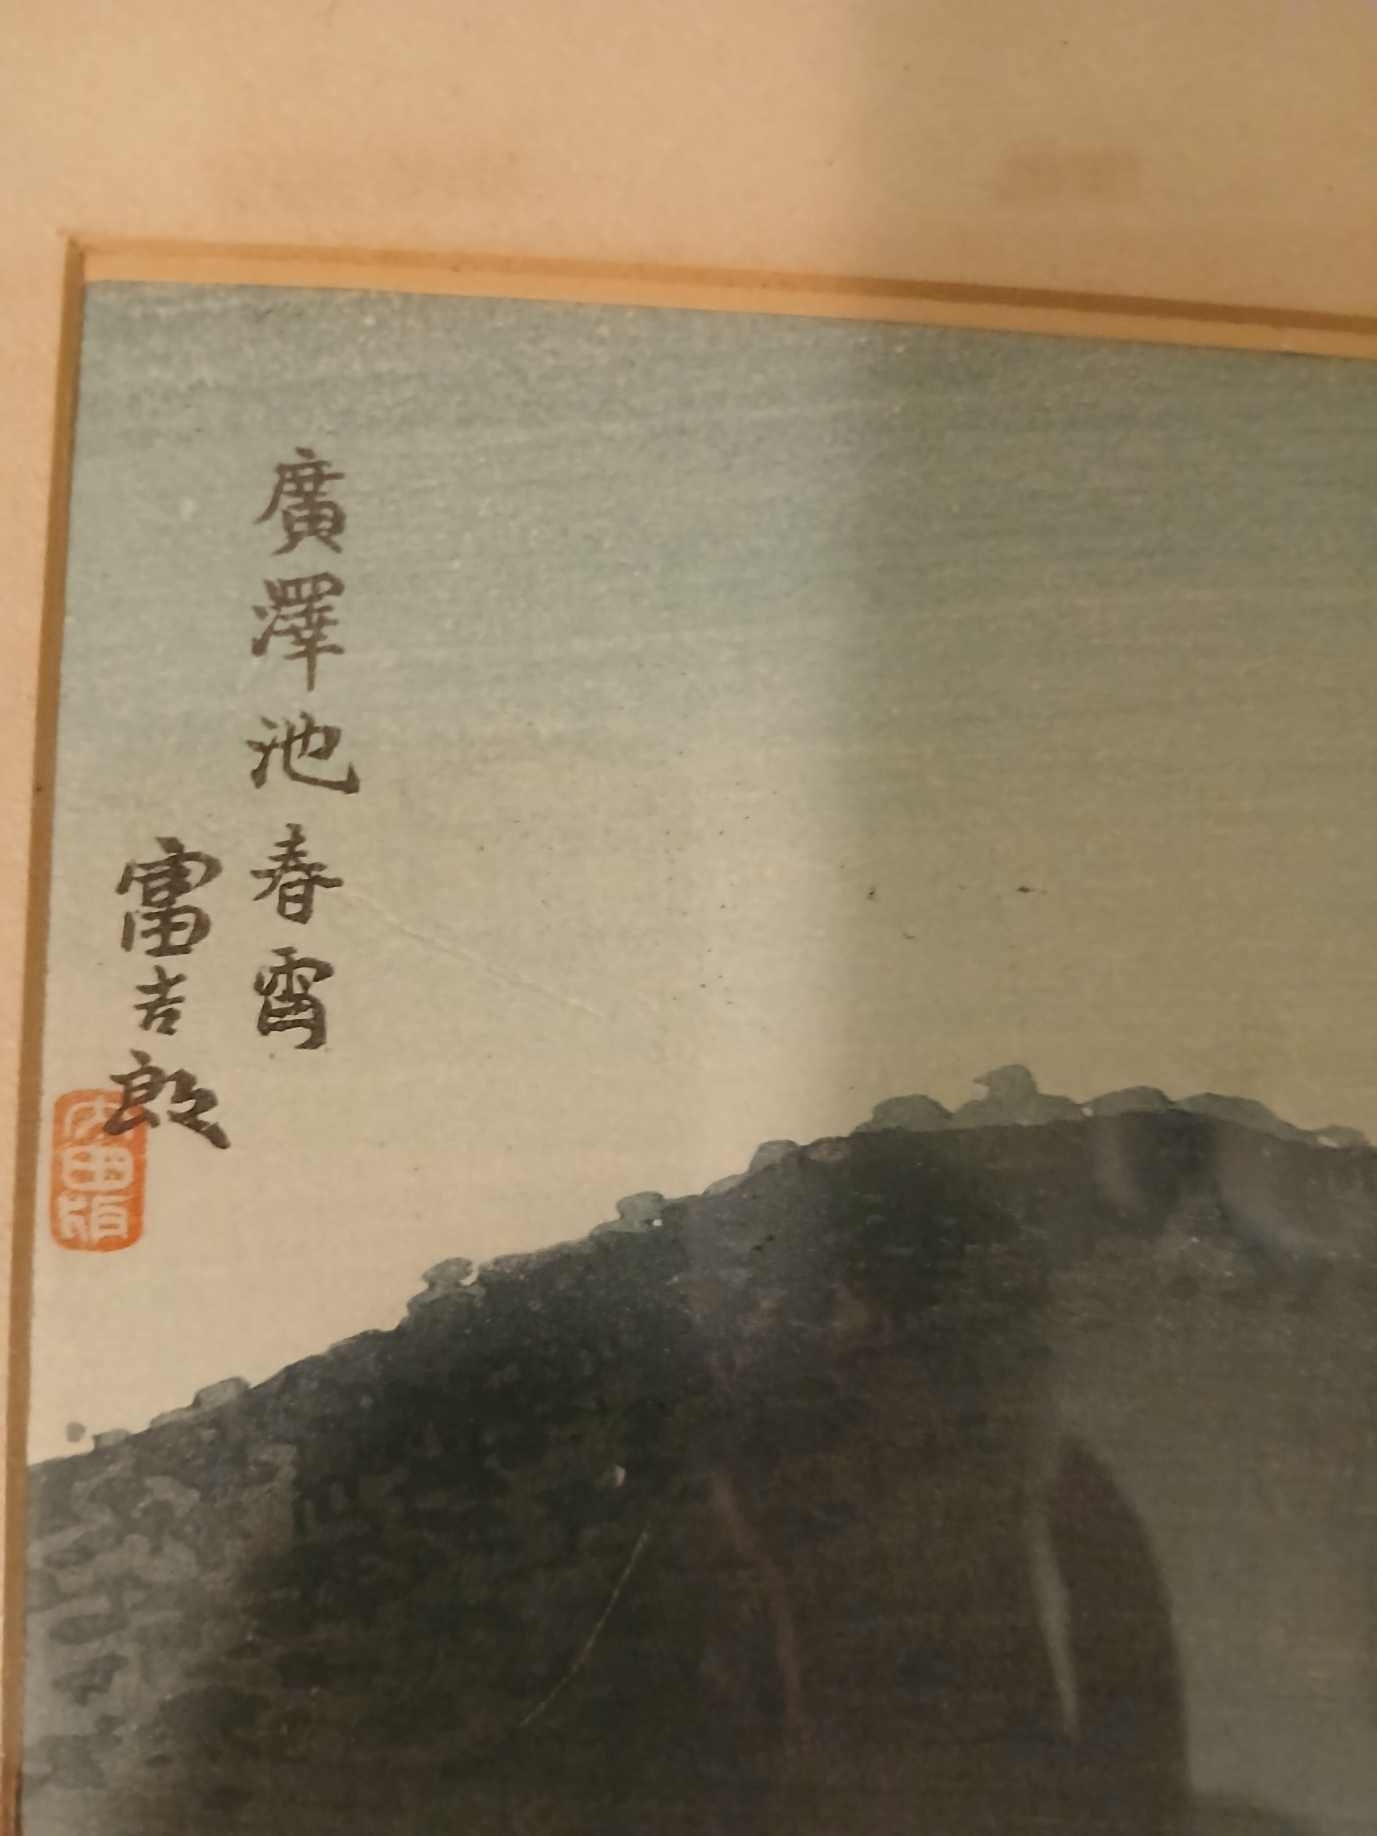 廣澤池春宵
富吉郎